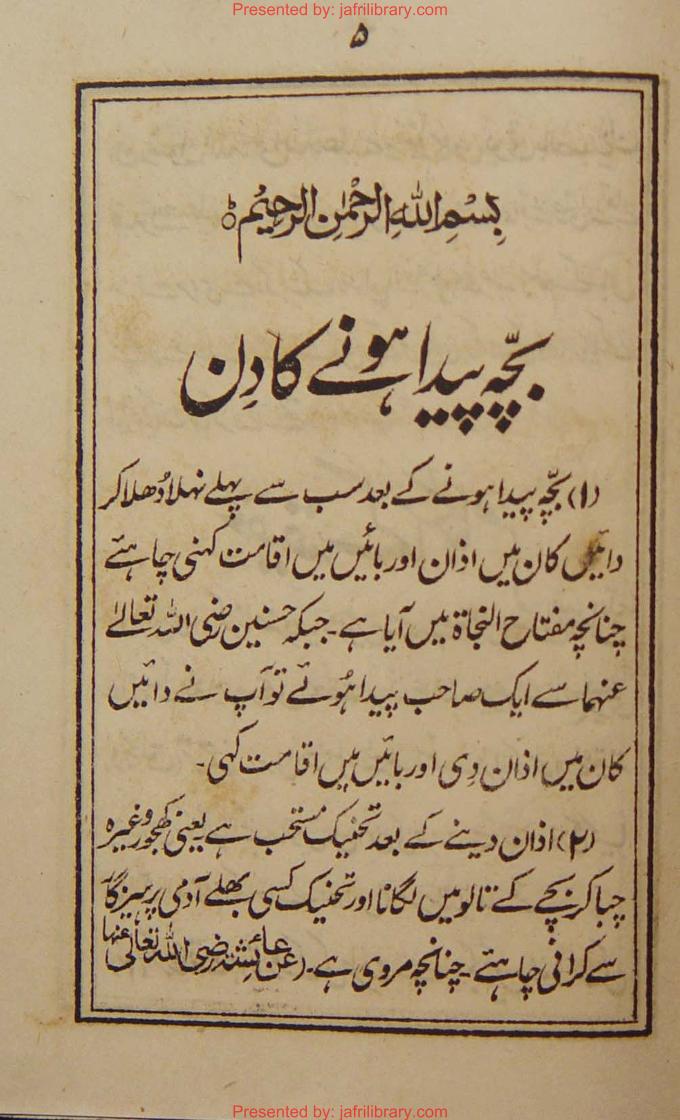 Presented by: jafrilibrary.com
۵
بِسْمِ اللهِ الرَّحْمٰنِ الرَّحِيْمِ ۵
بچّہ پیدا ہونے کا دِن
(۱) بچّہ پیدا ہونے کے بعد سب سے پہلے نہلا دُھلا کر
دائیں کان میں اذان اور بائیں میں اقامت کہنی چاہئے
چنانچہ مفتاح النجاۃ میں آیا ہے۔ جبکہ حسنین رضی اللہ تعالےٰ
عنہما سے ایک صاحب پیدا ہُوئے تو آپ نے دائیں
کان میں اذان دِی اور بائیں میں اقامت کہی۔
(۲) اذان دینے کے بعد تحنیک مستحب ہے یعنی کھجور وغیرہ
چبا کر بچے کے تالو میں لگانا اور تحنیک کسی بھلے آدمی پرہیزگار
سے کرانی چاہئے۔ چنانچہ مروی ہے۔ (عن عائشہ رضی اللہ تعالٰی عنہا
Presented by: jafrilibrary.com